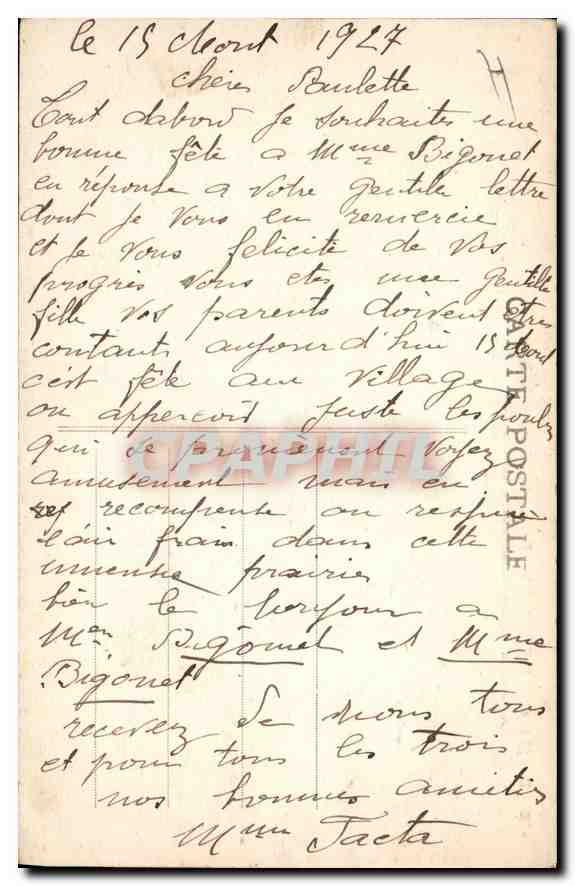 le 15 Aout 1927
chère Paulette
Tout dabord Je souhaites une
bonne fête a Mme Bigonet
en réponse a votre gentile lettre
dont Je vous en remercie
et Je vous felicite de vos
progrès vous etes une gentille
fille vos parents doivent êtres
contants aujourd'hui 15 Aout
c'est fête au village
on apperçoit juste les poules
qui se promènent voyez
amusement mais en
recompense on respire
l'air frais dans cette
immense prairies
bien le bonjour a
Mer Bigonet et Mme
Bigonet
recevez de nous tous
et pour tous les trois
nos bonnes amitiés
Mme Tacta
CARTE POSTALE
CPARPHIL